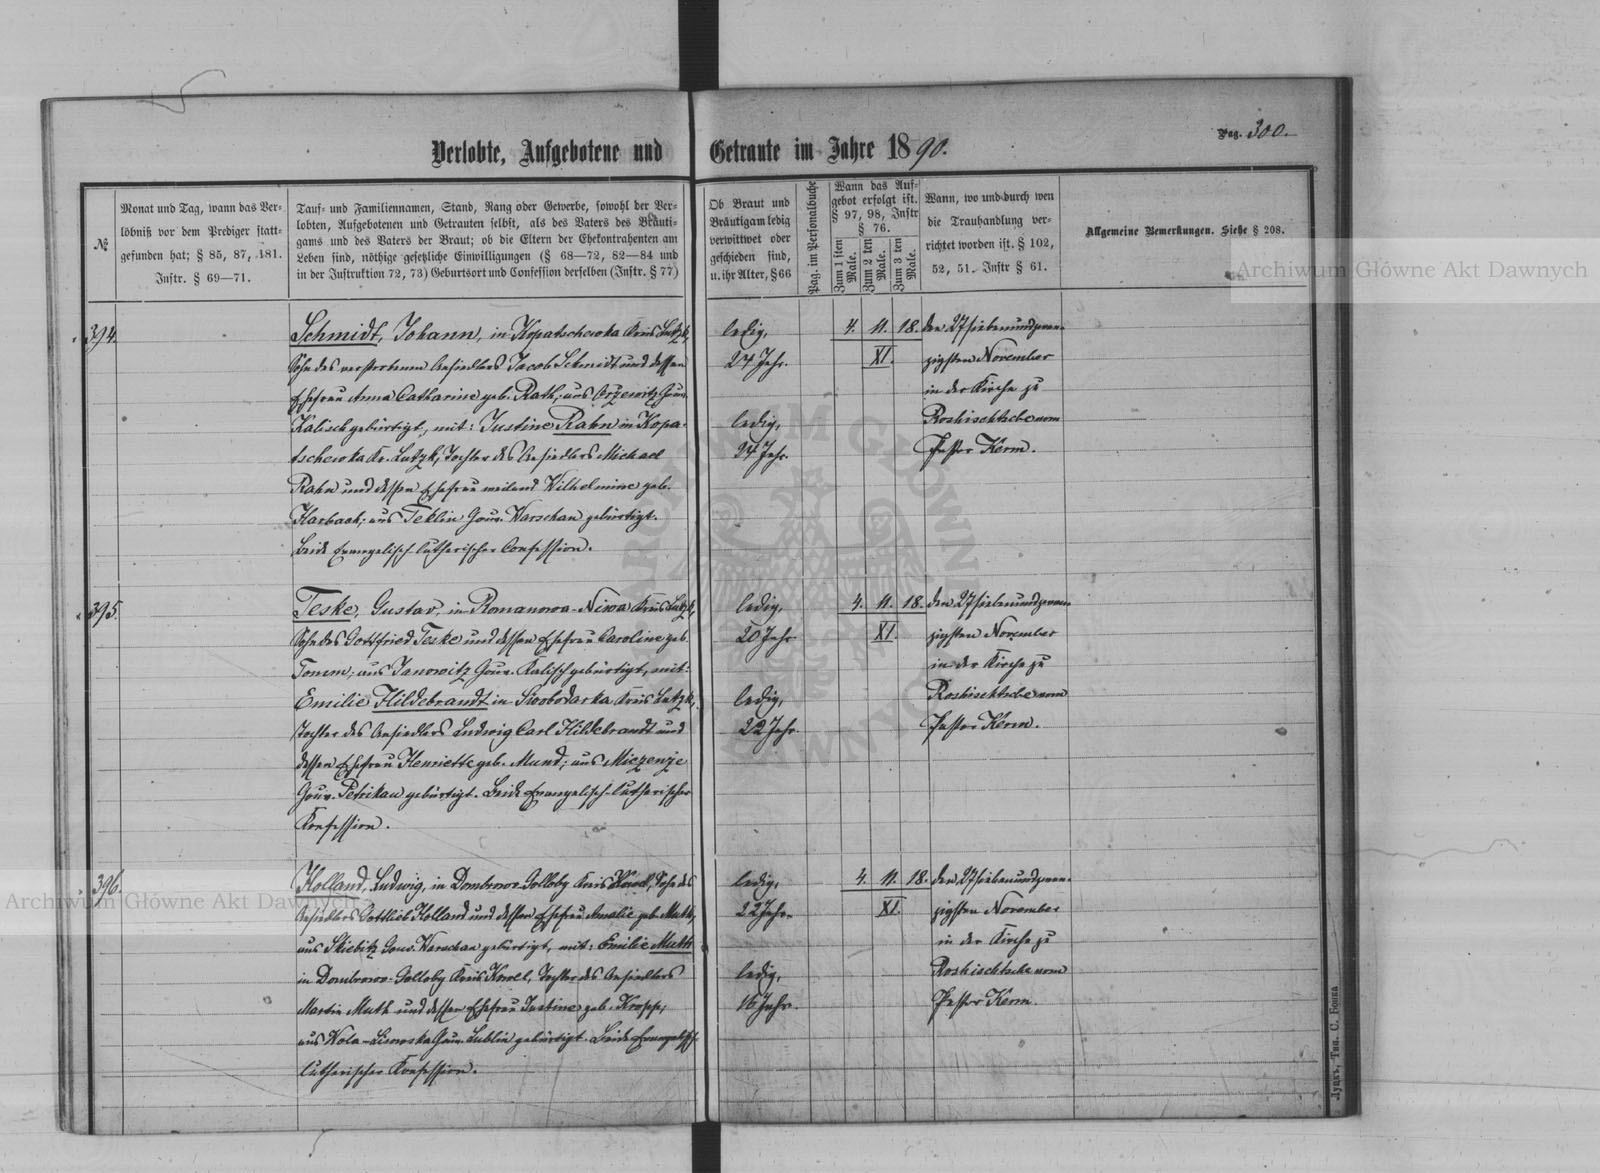 Pag. 300.
Verlobte, Aufgebotene und Getraute im Jahre 1890.
№
Monat und Tag, wann das Ver-
löbniß vor dem Prediger statt-
gefunden hat; § 85, 87, 181.
Instr. § 69—71.
Tauf- und Familiennamen, Stand, Rang oder Gewerbe, sowohl der Ver-
lobten, Aufgebotenen und Getrauten selbst, als des Vaters des Bräuti-
gams und des Vaters der Braut; ob die Eltern der Ehekontrahenten am
Leben sind, nöthige gesetzliche Einwilligungen (§ 68—72, 82—84 und
in der Instruktion 72, 73) Geburtsort und Confession derselben (Instr. § 77)
Ob Braut und
Bräutigam ledig
verwittwet oder
geschieden sind,
u. ihr Alter, § 66
Pag. im Personalbuche
Wann das Auf-
gebot erfolgt ist.
§ 97, 98, Instr
§ 76.
Zum 1 sten Male.
Zum 2 ten Male.
Zum 3 ten Male.
Wann, wo und durch wen
die Trauhandlung ver-
richtet worden ist. § 102,
52, 51. Instr § 61.
Allgemeine Bemerkungen. Siehe § 208.
Archiwum Główne Akt Dawnych
394.
Schmidt, Johann, in Kopatschewka Kreis Lutzk,
Sohn des verstorbenen Ansiedlers Jacob Schmidt und dessen
Ehefrau Anna Catharine geb. Rath; aus Orzewitz Gouv.
Kalisch gebürtigt, mit: Justine Rahn in Kopa-
tschewka Kr. Lutzk, Tochter des Ansiedlers Michael
Rahn und dessen Ehefrau weiland Wilhelmine geb.
Harbach; aus Teklin Gouv. Warschau gebürtigt.
Beide Evangelisch-lutherischer Confession.
ledig,
24 Jahr.
ledig,
24 Jahr.
4. 11. 18.
XI.
den 27 siebenundzwan-
zigsten November
in der Kirche zu
Roshischtsche vom
Pastor Kerm.
395.
Teske, Gustav, in Romanowa-Niwa Kreis Lutzk,
Sohn des Gottfried Teske und dessen Ehefrau Caroline geb.
Tomm; aus Janowitz Gouv. Kalisch gebürtigt, mit:
Emilie Hildebrandt in Swobodarka Kreis Lutzk,
Tochter des Ansiedlers Ludwig Carl Hildebrandt und
dessen Ehefrau Henriette geb. Mund; aus Miezenze
Gouv. Petrikau gebürtigt. Beide Evangelisch-lutherischer
Konfession.
ledig,
20 Jahr
ledig,
22 Jahr.
4. 11. 18.
XI.
den 27 siebenundzwan-
zigsten November
in der Kirche zu
Roshischtsche vom
Pastor Kerm.
396.
Holland, Ludwig, in Dombrowo-Golloby Kreis Kowel, Sohn des
Ansiedlers Gottlieb Holland und dessen Ehefrau Amalie geb. Muth,
aus Skiebitz Gouv. Warschau gebürtigt, mit: Emilie Muth
in Dombrowo-Golloby Kreis Kowel, Tochter des Ansiedlers
Martin Muth und dessen Ehefrau Justine geb. Kropp;
aus Wola-Lisowska Gouv. Lublin gebürtigt. Beide Evangelisch-
lutherischer Konfession.
ledig,
22 Jahr.
ledig,
16 Jahr.
4. 11. 18.
XI.
den 27 siebenundzwan-
zigsten November
in der Kirche zu
Roshischtsche vom
Pastor Kerm.
Archiwum Główne Akt Dawnych
Луцкъ, Тип. С. Бонка